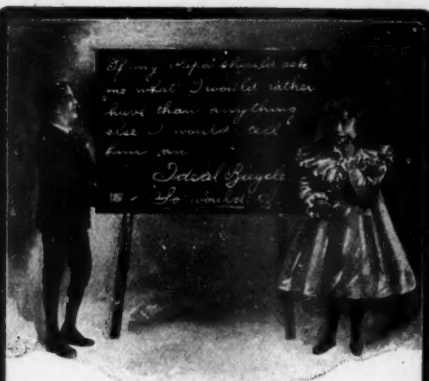 If my Papa should ask
me what I would rather
have than anything
else I would tell
him an
Ideal Bicycle
So would I.